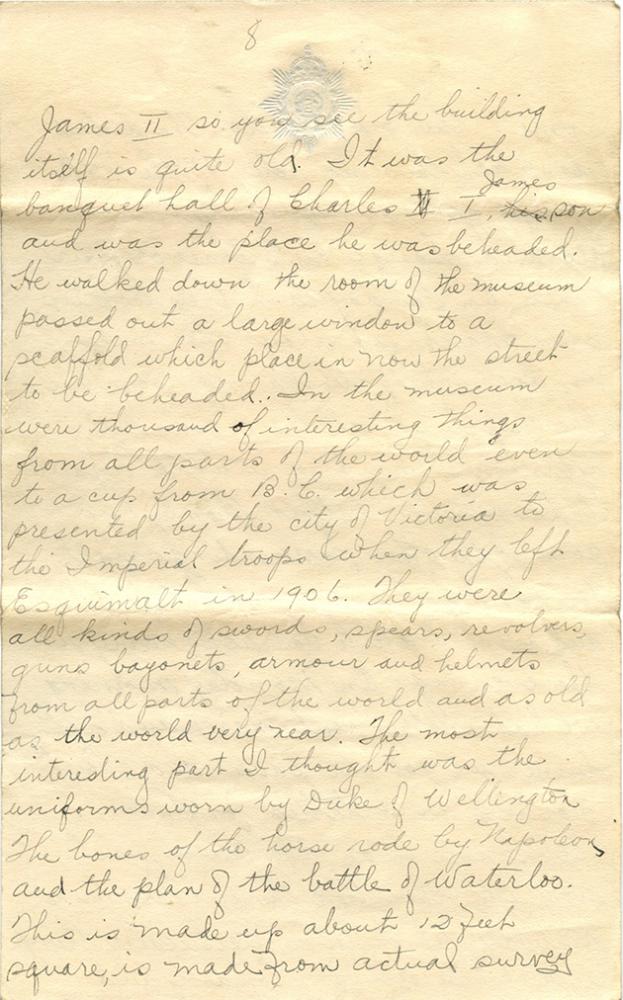 8
James II so you see the building
itself is quite old. It was the
James
banquet hall of Charles I, his son
and was the place he was beheaded.
He walked down the room of the museum
passed out a large window to a
scaffold which place in now the street
to be beheaded. In the museum
were thousand of interesting things
from all parts of the world even
to a cup from B.C. which was
presented by the city of Victoria to
the Imperial troops when they left
Esquimalt in 1906. They were
all kinds of swords, spears, revolvers,
guns bayonets, armour and helmets
from all parts of the world and as old
as the world very near. The most
interesting part I thought was the
uniforms worn by Duke of Wellington
The bones of the horse rode by Napoleon,
and the plan of the battle of Waterloo.
This is made up about 12 feet
square, is made from actual survey